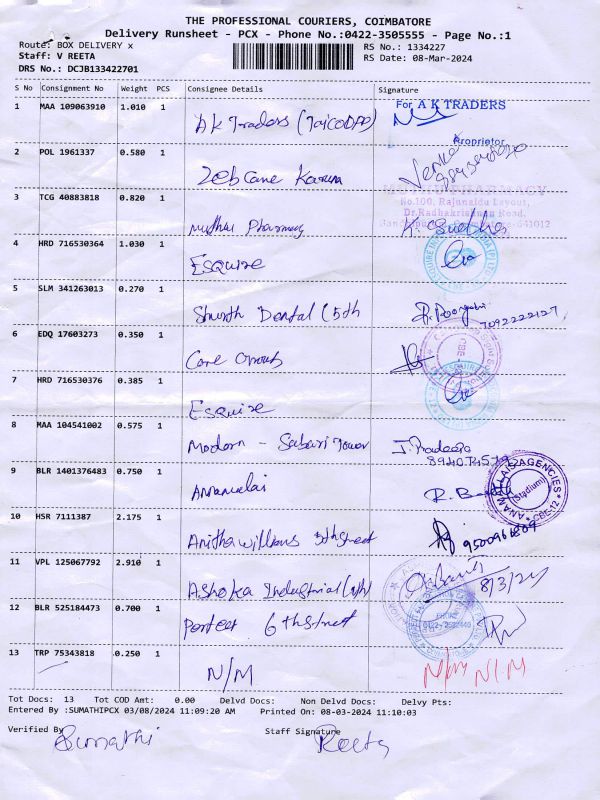 THE PROFESSIONAL COURIERS, COIMBATORE
Delivery Runsheet - PCX - Phone No.:0422-3505555 - Page No.:1
Route: BOX DELIVERY x RS No.: 1334227
Staff: V REETA RS Date: 08-Mar-2024
DRS No.: DCJB133422701
S No Consignment No Weight PCS Consignee Details Signature
1 MAA 109063910 1.010 1 AK Traders For A K TRADERS
Proprietor
2 POL 1961337 0.580 1
3 TCG 40883818 0.820 1 Muthu Pharmacy
No.100, Rajunaidu Layout,
Dr.Radhakrishnan Road,
641012
4 HRD 716530364 1.030 1 ESQUIRE
5 SLM 341263013 0.270 1 Dental (5th 7092222127
6 EDQ 17603273 0.350 1 Care
7 HRD 716530376 0.385 1 Esquire
8 MAA 104541002 0.575 1 Modern - Sabari Tower J. Pradeepa
9 BLR 1401376483 0.750 1 Annamalai ANAMALLAIS AGENCIES (Stadium) CBE-12
10 HSR 7111387 2.175 1 Anitha Williams 5th street
11 VPL 125067792 2.910 1 Ashoka Industrial 8/3/24
12 BLR 525184473 0.700 1 Perfect 6th street
13 TRP 75343818 0.250 1 N/M N/M N/M
Tot Docs: 13 Tot COD Amt: 0.00 Delvd Docs: Non Delvd Docs: Delvy Pts:
Entered By :SUMATHIPCX 03/08/2024 11:09:20 AM Printed On: 08-03-2024 11:10:03
Verified By Sumathi Staff Signature Reeta